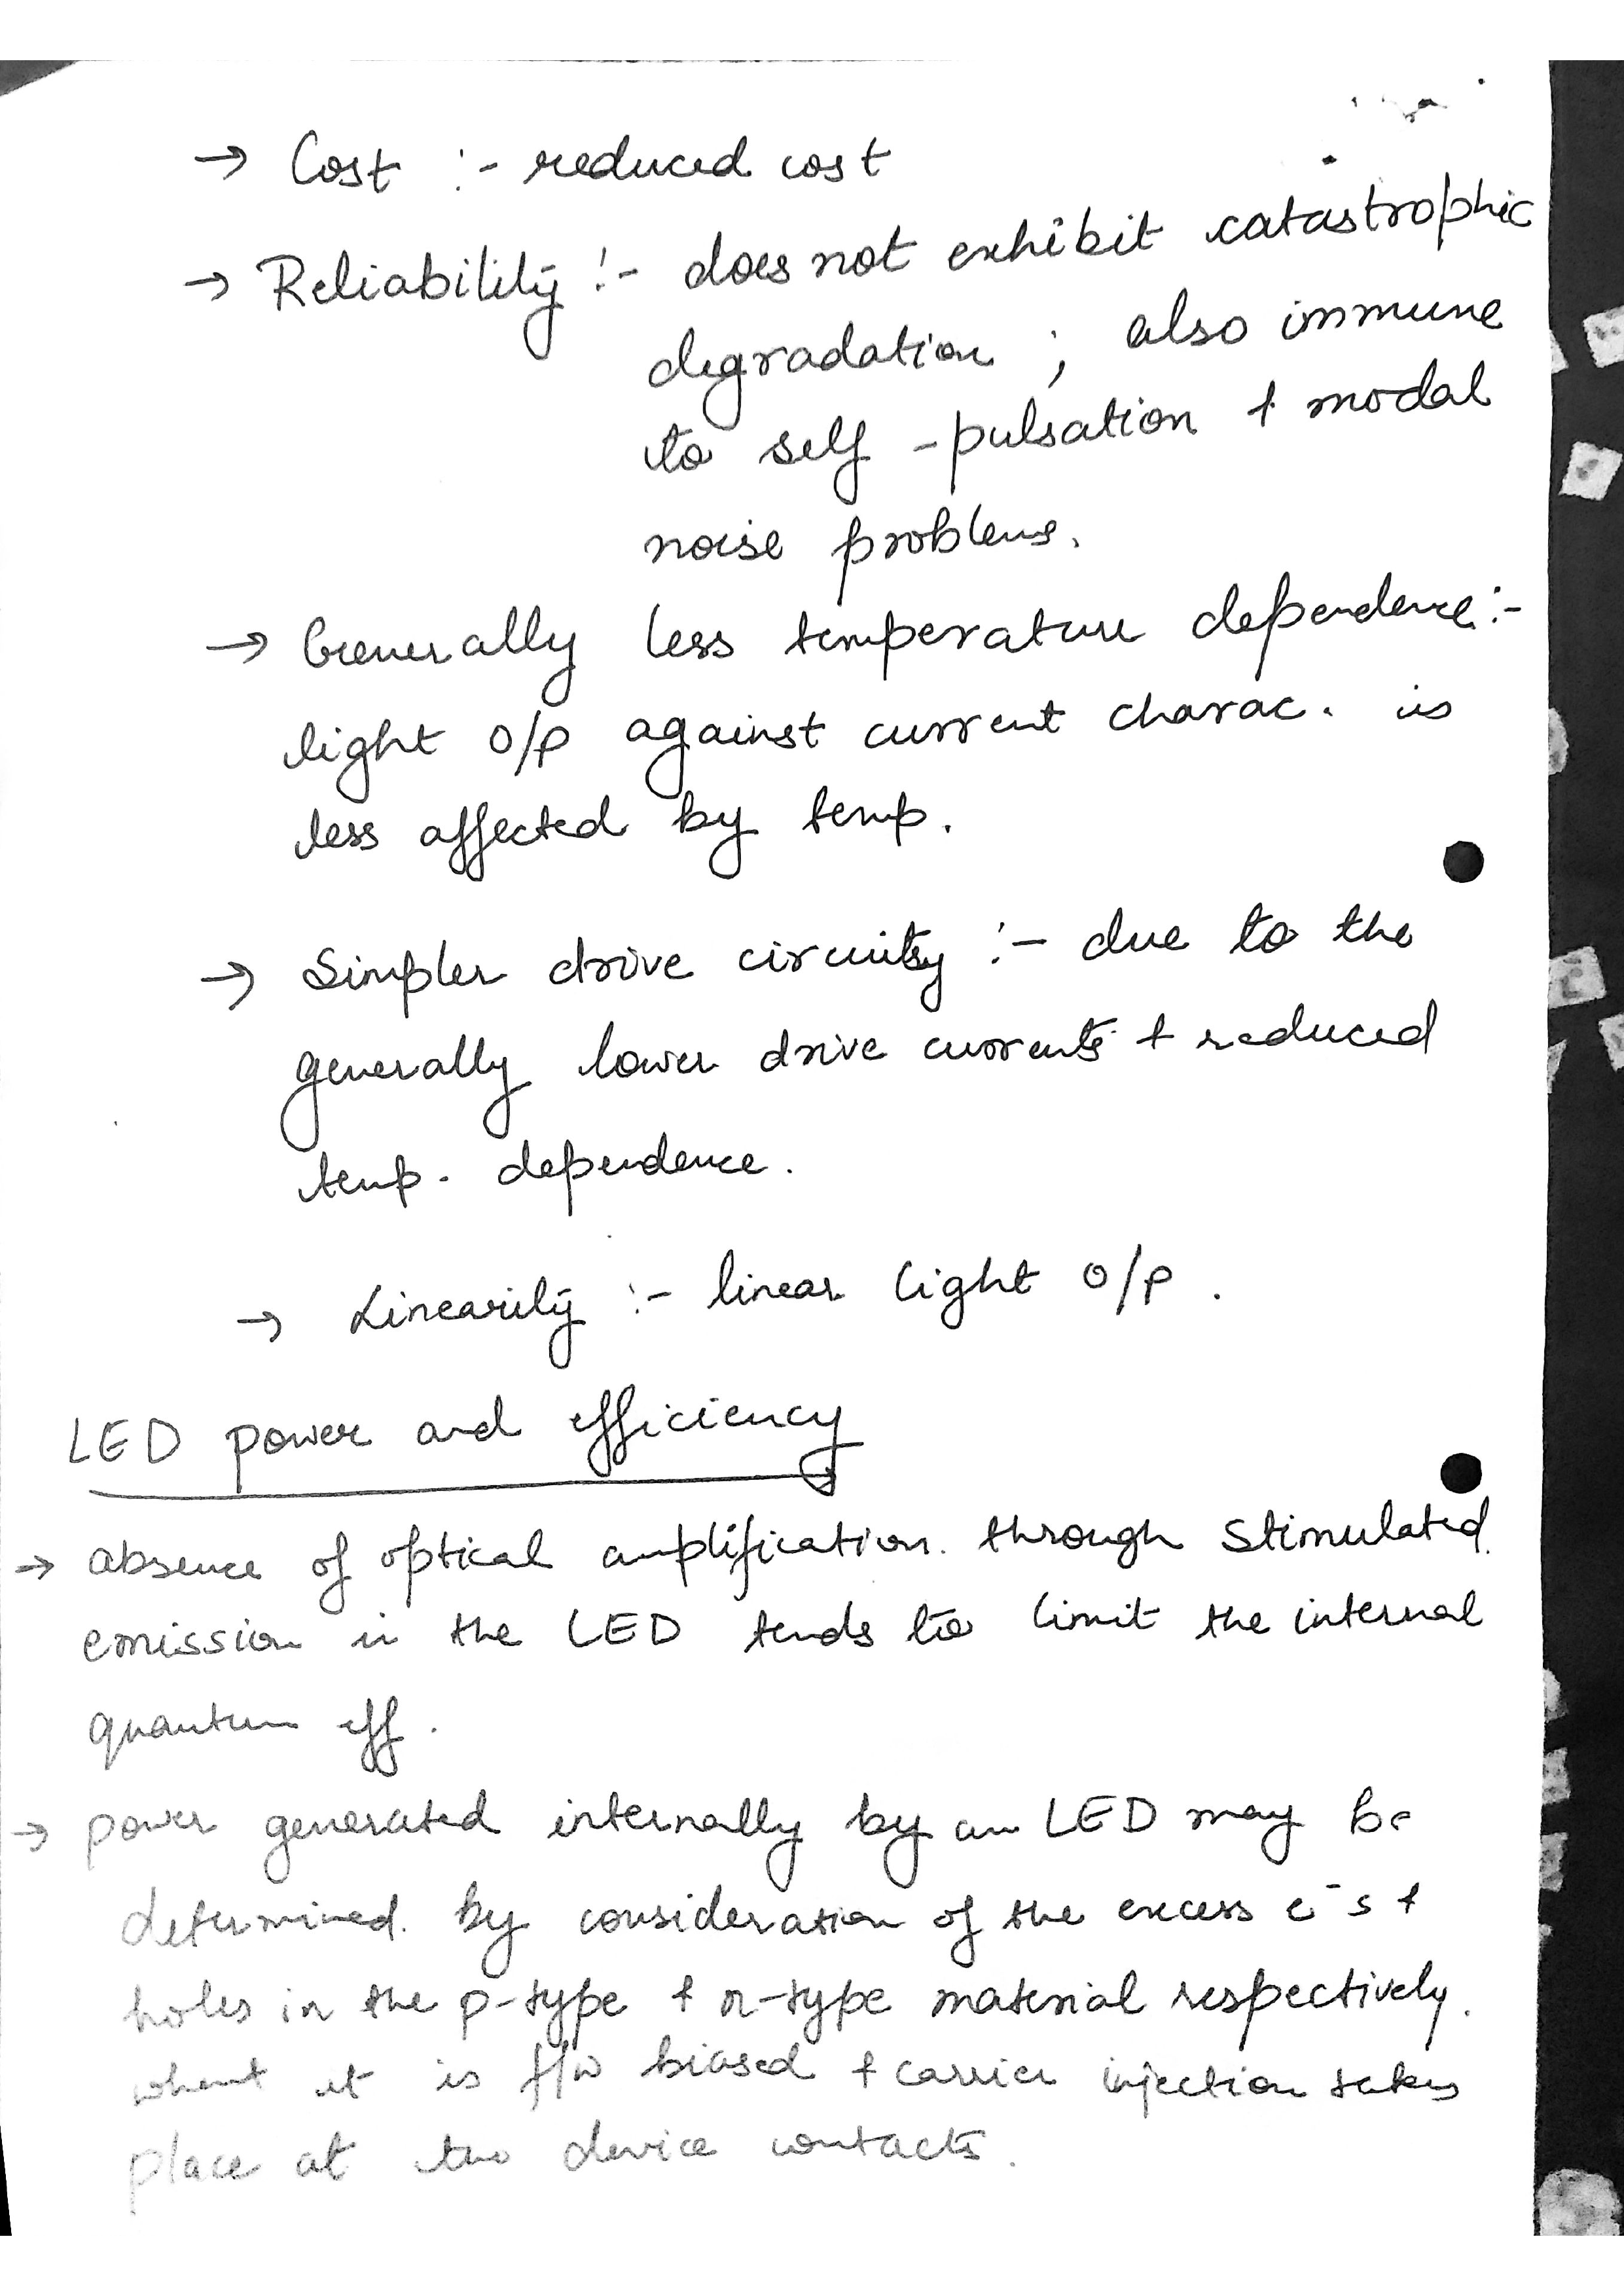 → Cost :- reduced cost
→ Reliability :- does not exhibit catastrophic
degradation ; also immune
to self - pulsation + modal
noise problems.
→ Generally less temperature dependence :-
light o/p against current charac. is
less affected by temp.
→ Simpler drive circuitry :- due to the
generally lower drive currents + reduced
temp. dependence.
→ Linearity :- linear light o/p.
LED power and efficiency
→ absence of optical amplification through stimulated
emission in the LED tends to limit the internal
quantum eff.
→ power generated internally by an LED may be
determined by consideration of the excess e⁻s +
holes in the p-type + n-type material respectively.
when it is f/w biased + carrier injection takes
place at the device contacts.